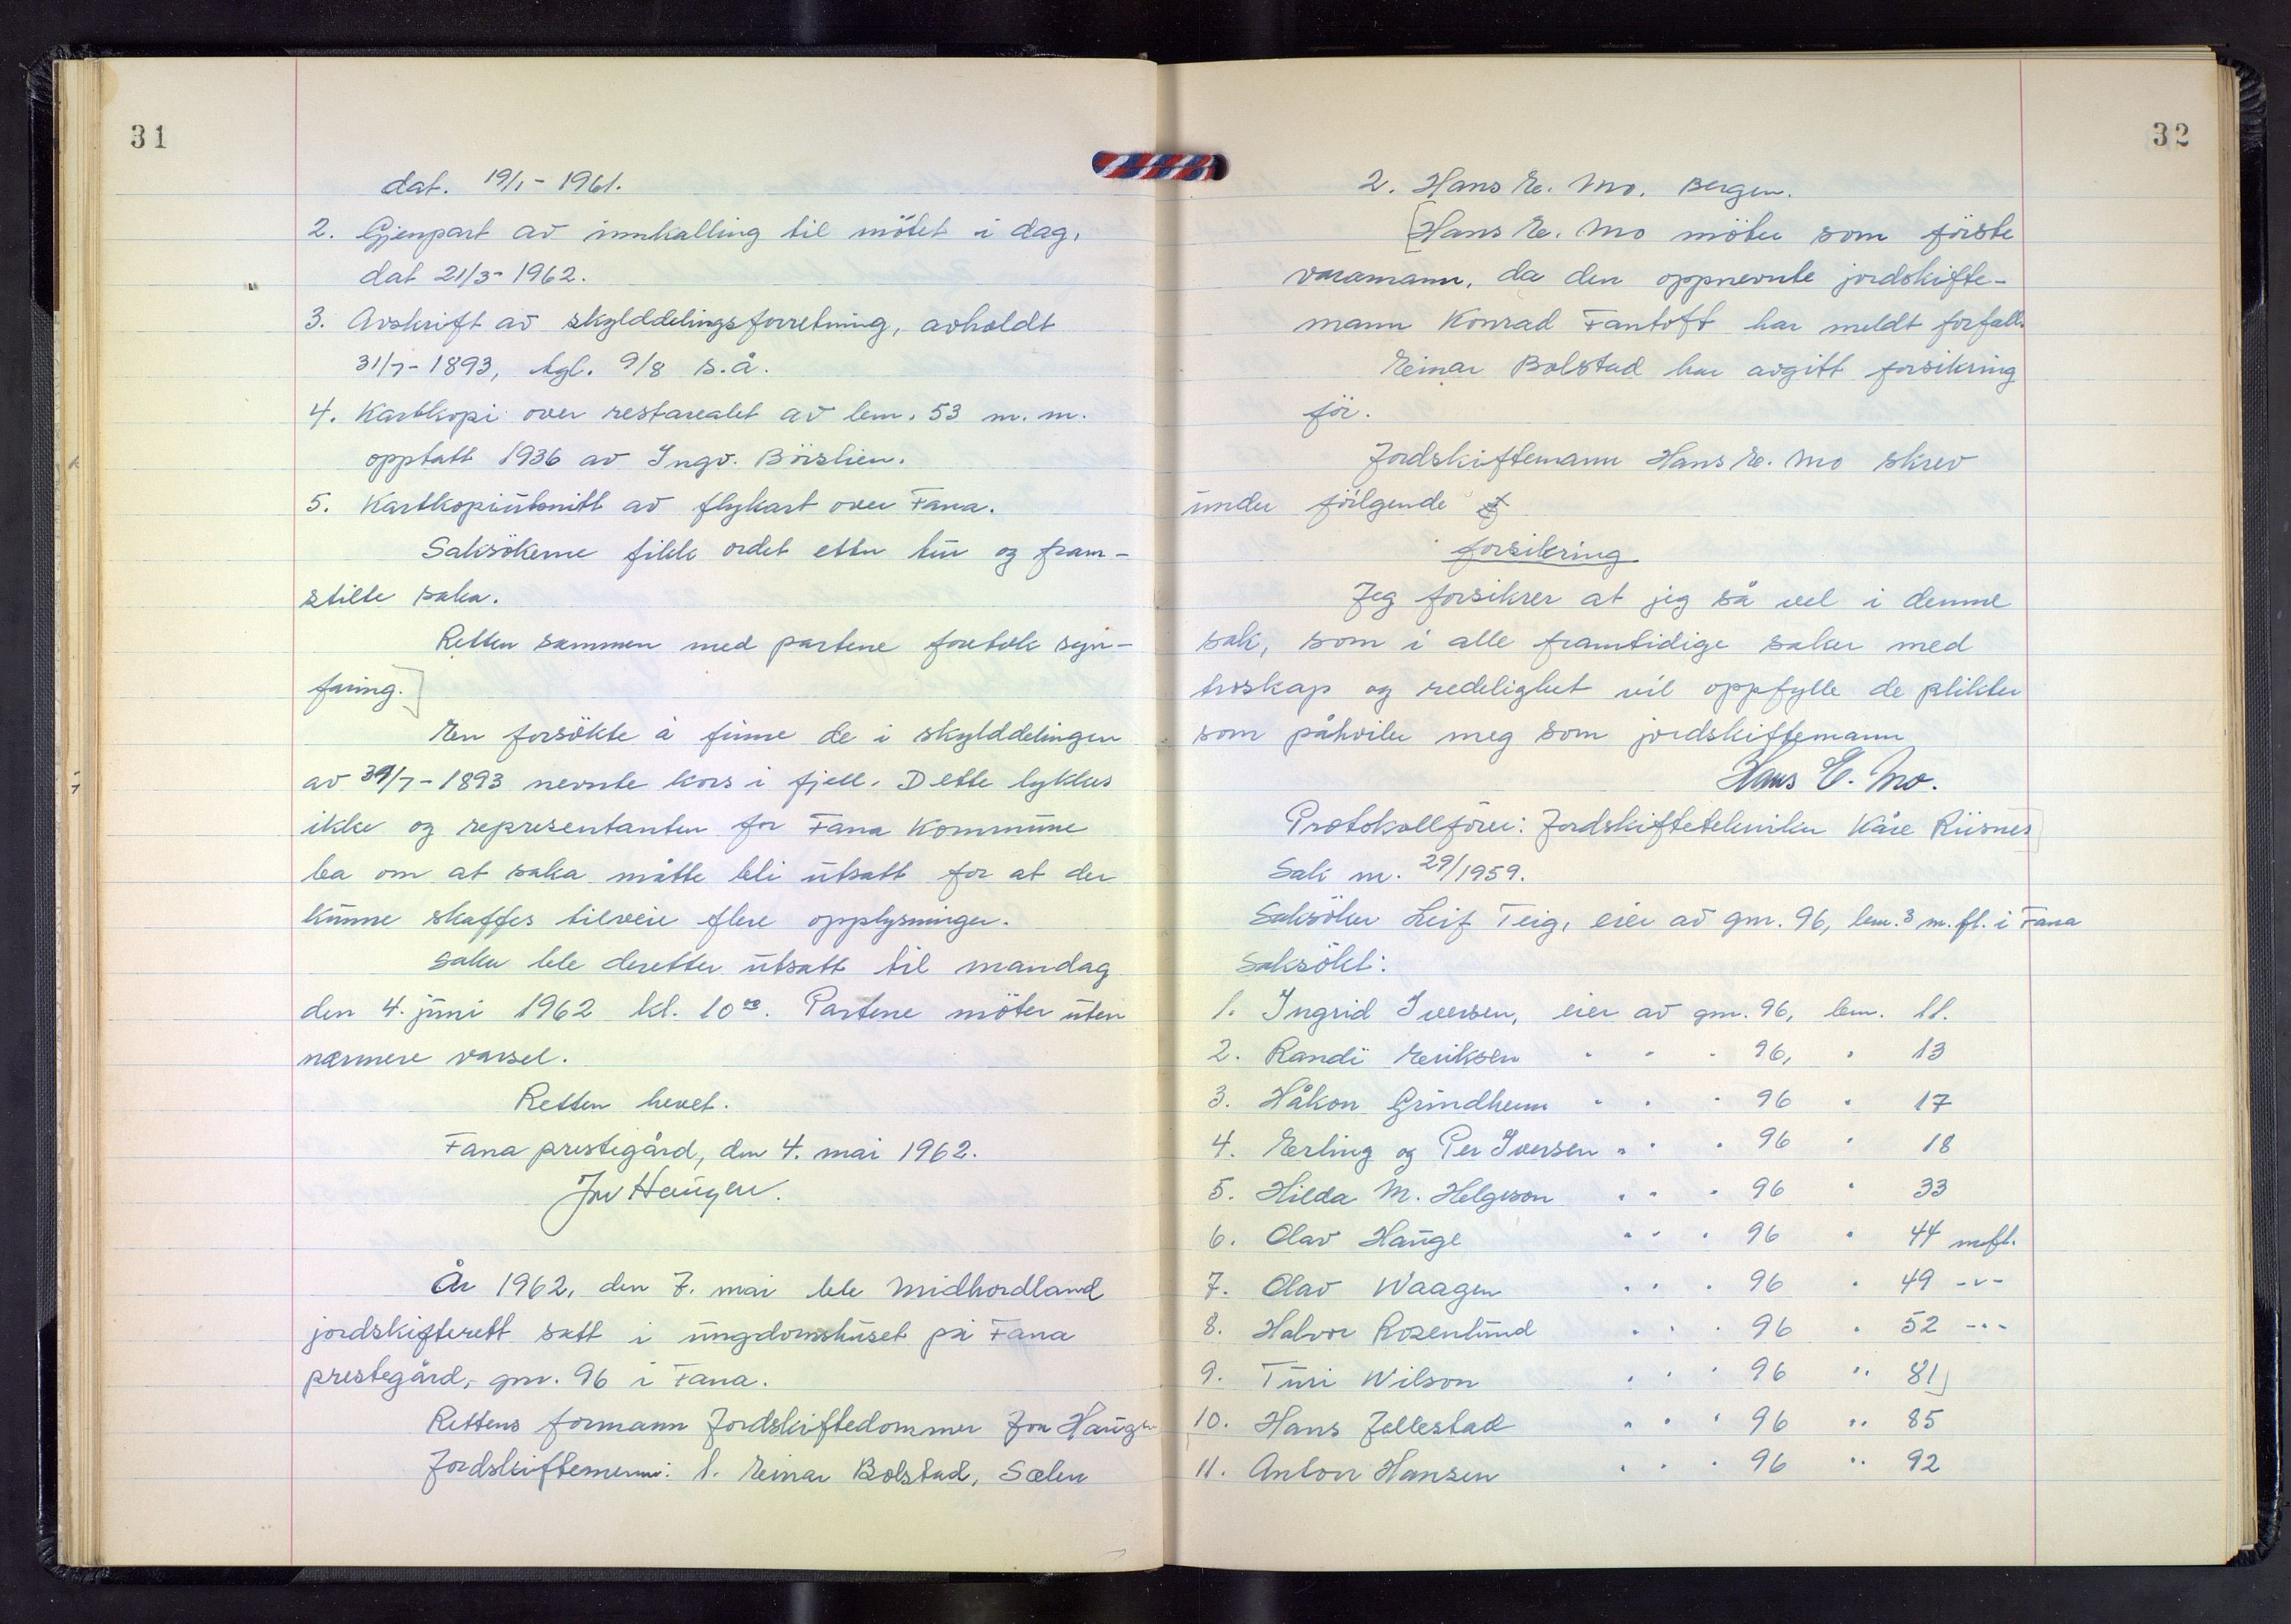 31
dat. 19/1- 1961.
2. Gjenpart av innkalling til mötet i dag,
dat 21/3- 1962.
3. Avskrift av skylddelingsforretning, avholdt
31/7- 1893, tgl. 9/8 s.å.
4. Kartkopi over restarealet av bnr. 53 m.m.
opptatt 1936 av Ingv. Börslien.
5. Kartkopiutsnitt av flykart over Fana.
Saksökerne fikk ordet etter tur og fram-
stilte saka.
Retten sammen med partene foretok syn-
faring.]
En forsökte å finne de i skylddelingen
av 31/7- 1893 nevnte kors i fjell. Dette lyktes
ikke og representanten for Fana Kommune
ba om at saka måtte bli utsatt for at der
kunne skaffes tilveie flere opplysninger.
Saka ble deretter utsatt til mandag
den 4. juni 1962 kl. 10⁰⁰. Partene möter uten
nærmere varsel.
Retten hevet.
Fana prestegård, den 4. mai 1962.
Jon Haugen.
År 1962, den 7. mai ble Midhordland
jordskifterett satt i ungdomshuset på Fana
prestegård, gnr. 96 i Fana.
Rettens formann Jordskiftedommer Jon Haugen
Jordskiftemenn: 1. Einar Bolstad, Sælen
32
2. Hans E. Mo, Bergen.
[Hans E. Mo möter som förste
varamann, da den oppnevnte jordskifte-
mann Konrad Fantoft har meldt forfall.
Einar Bolstad har avgitt forsikring
för.
Jordskiftemann Hans E. Mo skrev
under fölgende
forsikring
Jeg forsikrer at jeg så vel i denne
sak, som i alle framtidige saker med
troskap og redelighet vil oppfylle de plikter
som påhviler meg som jordskiftemann
Hans E. Mo.
Protokollförer: Jordskiftetekniker Kåre Riisnes]
Sak nr. 29/1959.
Saksöker Leif Teig, eier av gnr. 96, bnr. 3 m.fl. i Fana
Saksökt:
1. Ingrid Iversen, eier av gnr. 96, bnr. 11.
2. Randi Eriksen " " " 96, " 13
3. Håkon Grindheim " " " 96 " 17
4. Erling og Per Iversen " " " 96 " 18
5. Hilda M. Helgeson " " " 96 " 33
6. Olav Hauge " " " 96 " 44 m.fl.
7. Olav Waagen " " " 96 " 49 -"-
8. Halvor Rosenlund " " " 96 " 52 -"-
9. Turi Wilson " " " 96 " 81]
10. Hans Jellestad " " " 96 " 85
11. Anton Hansen " " " 96 " 92